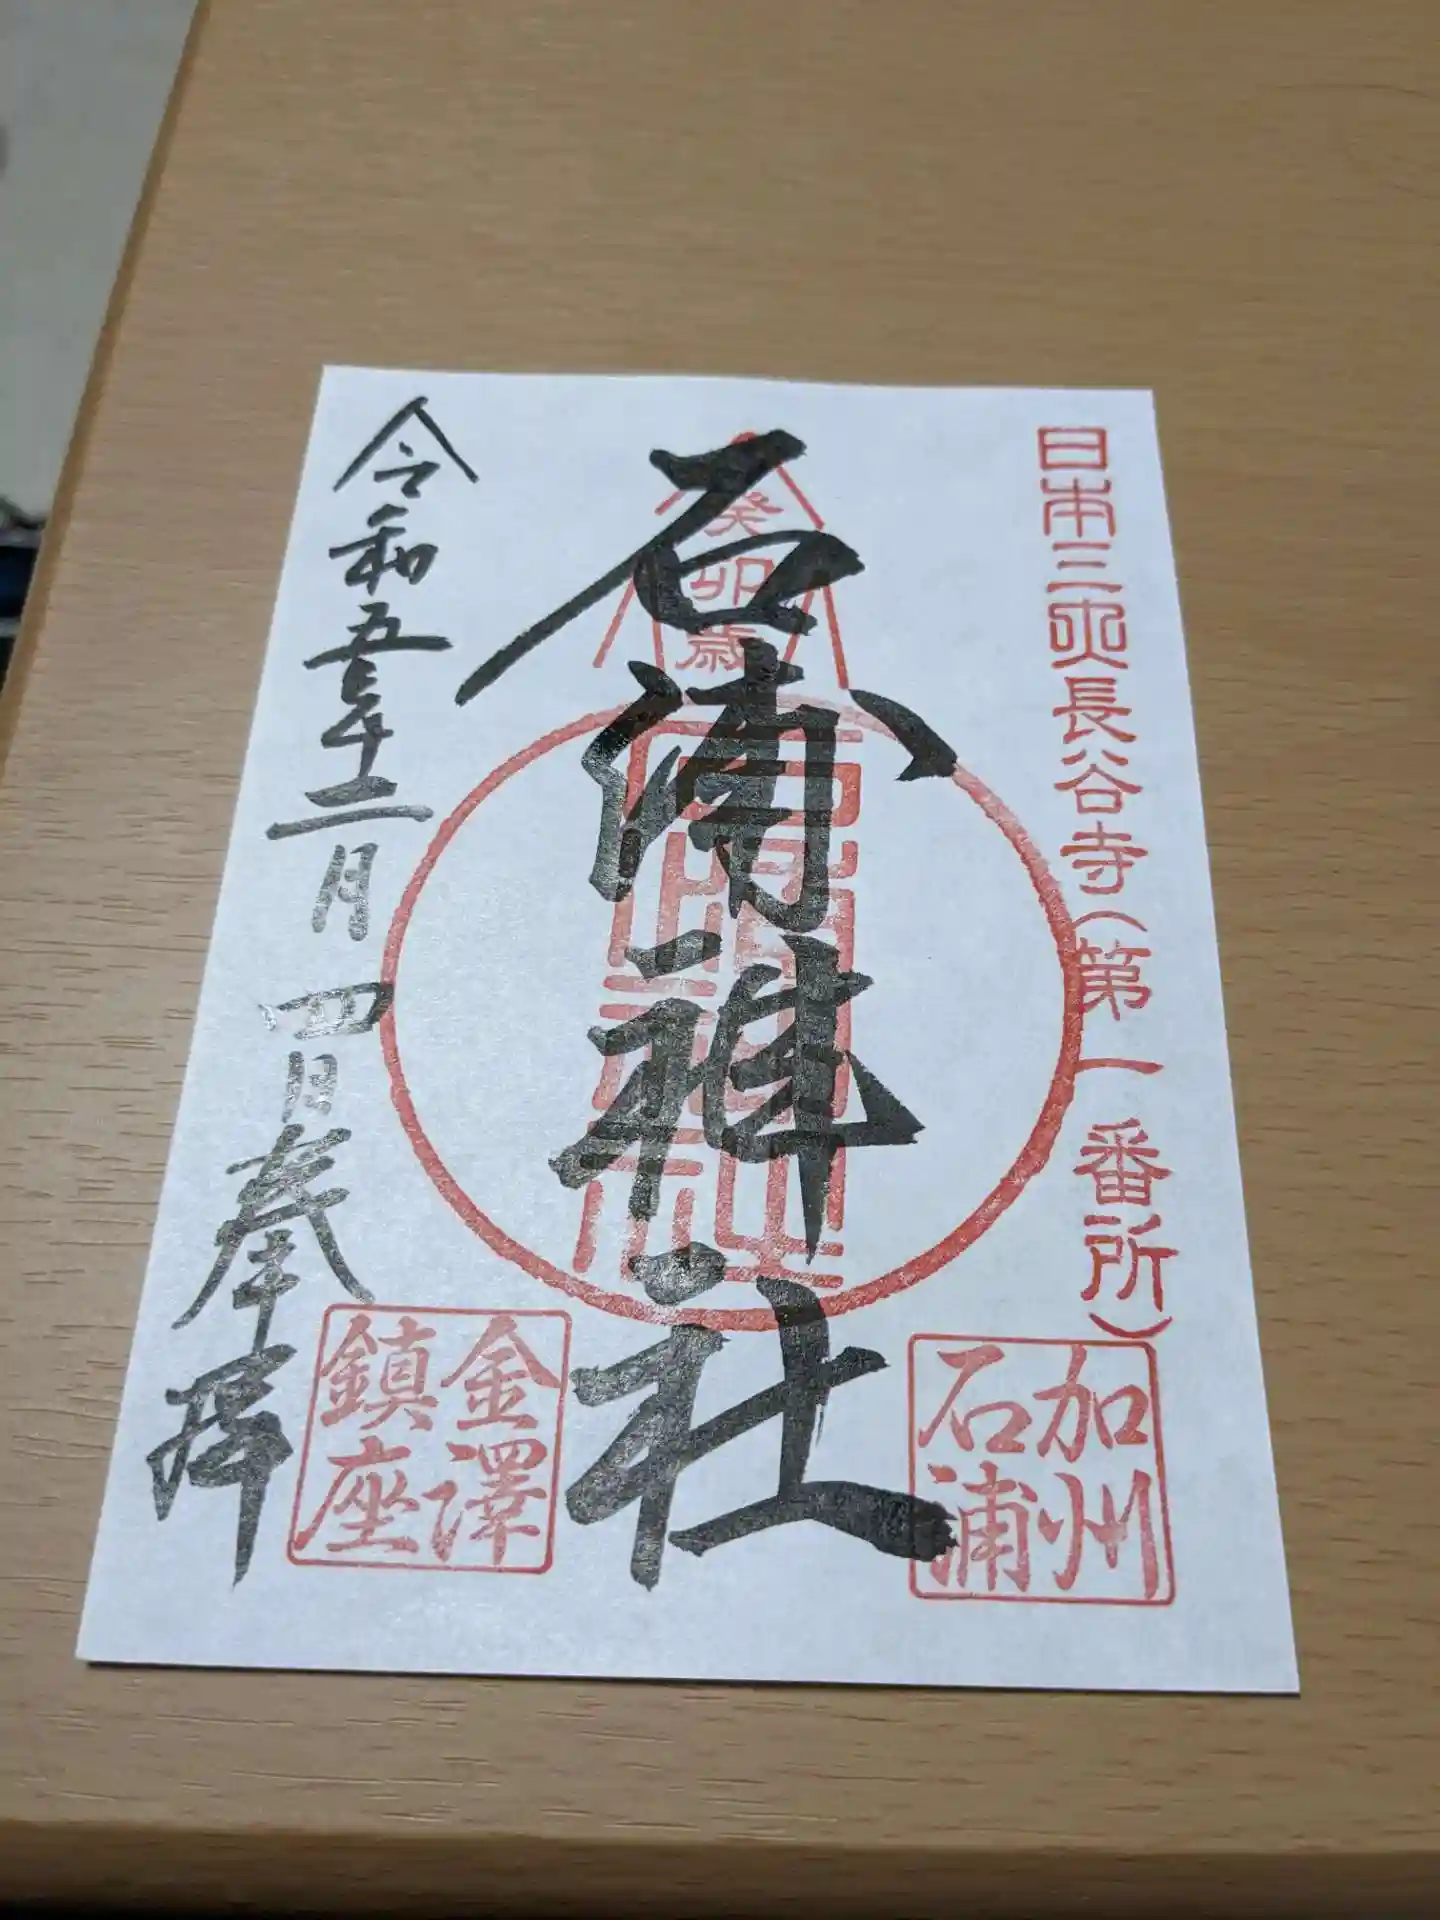 日本三大長谷寺(第一番所)
加州
石浦
癸卯歳
石浦神社
石浦神社
金澤
鎮座
令和五年十二月四日奉拝